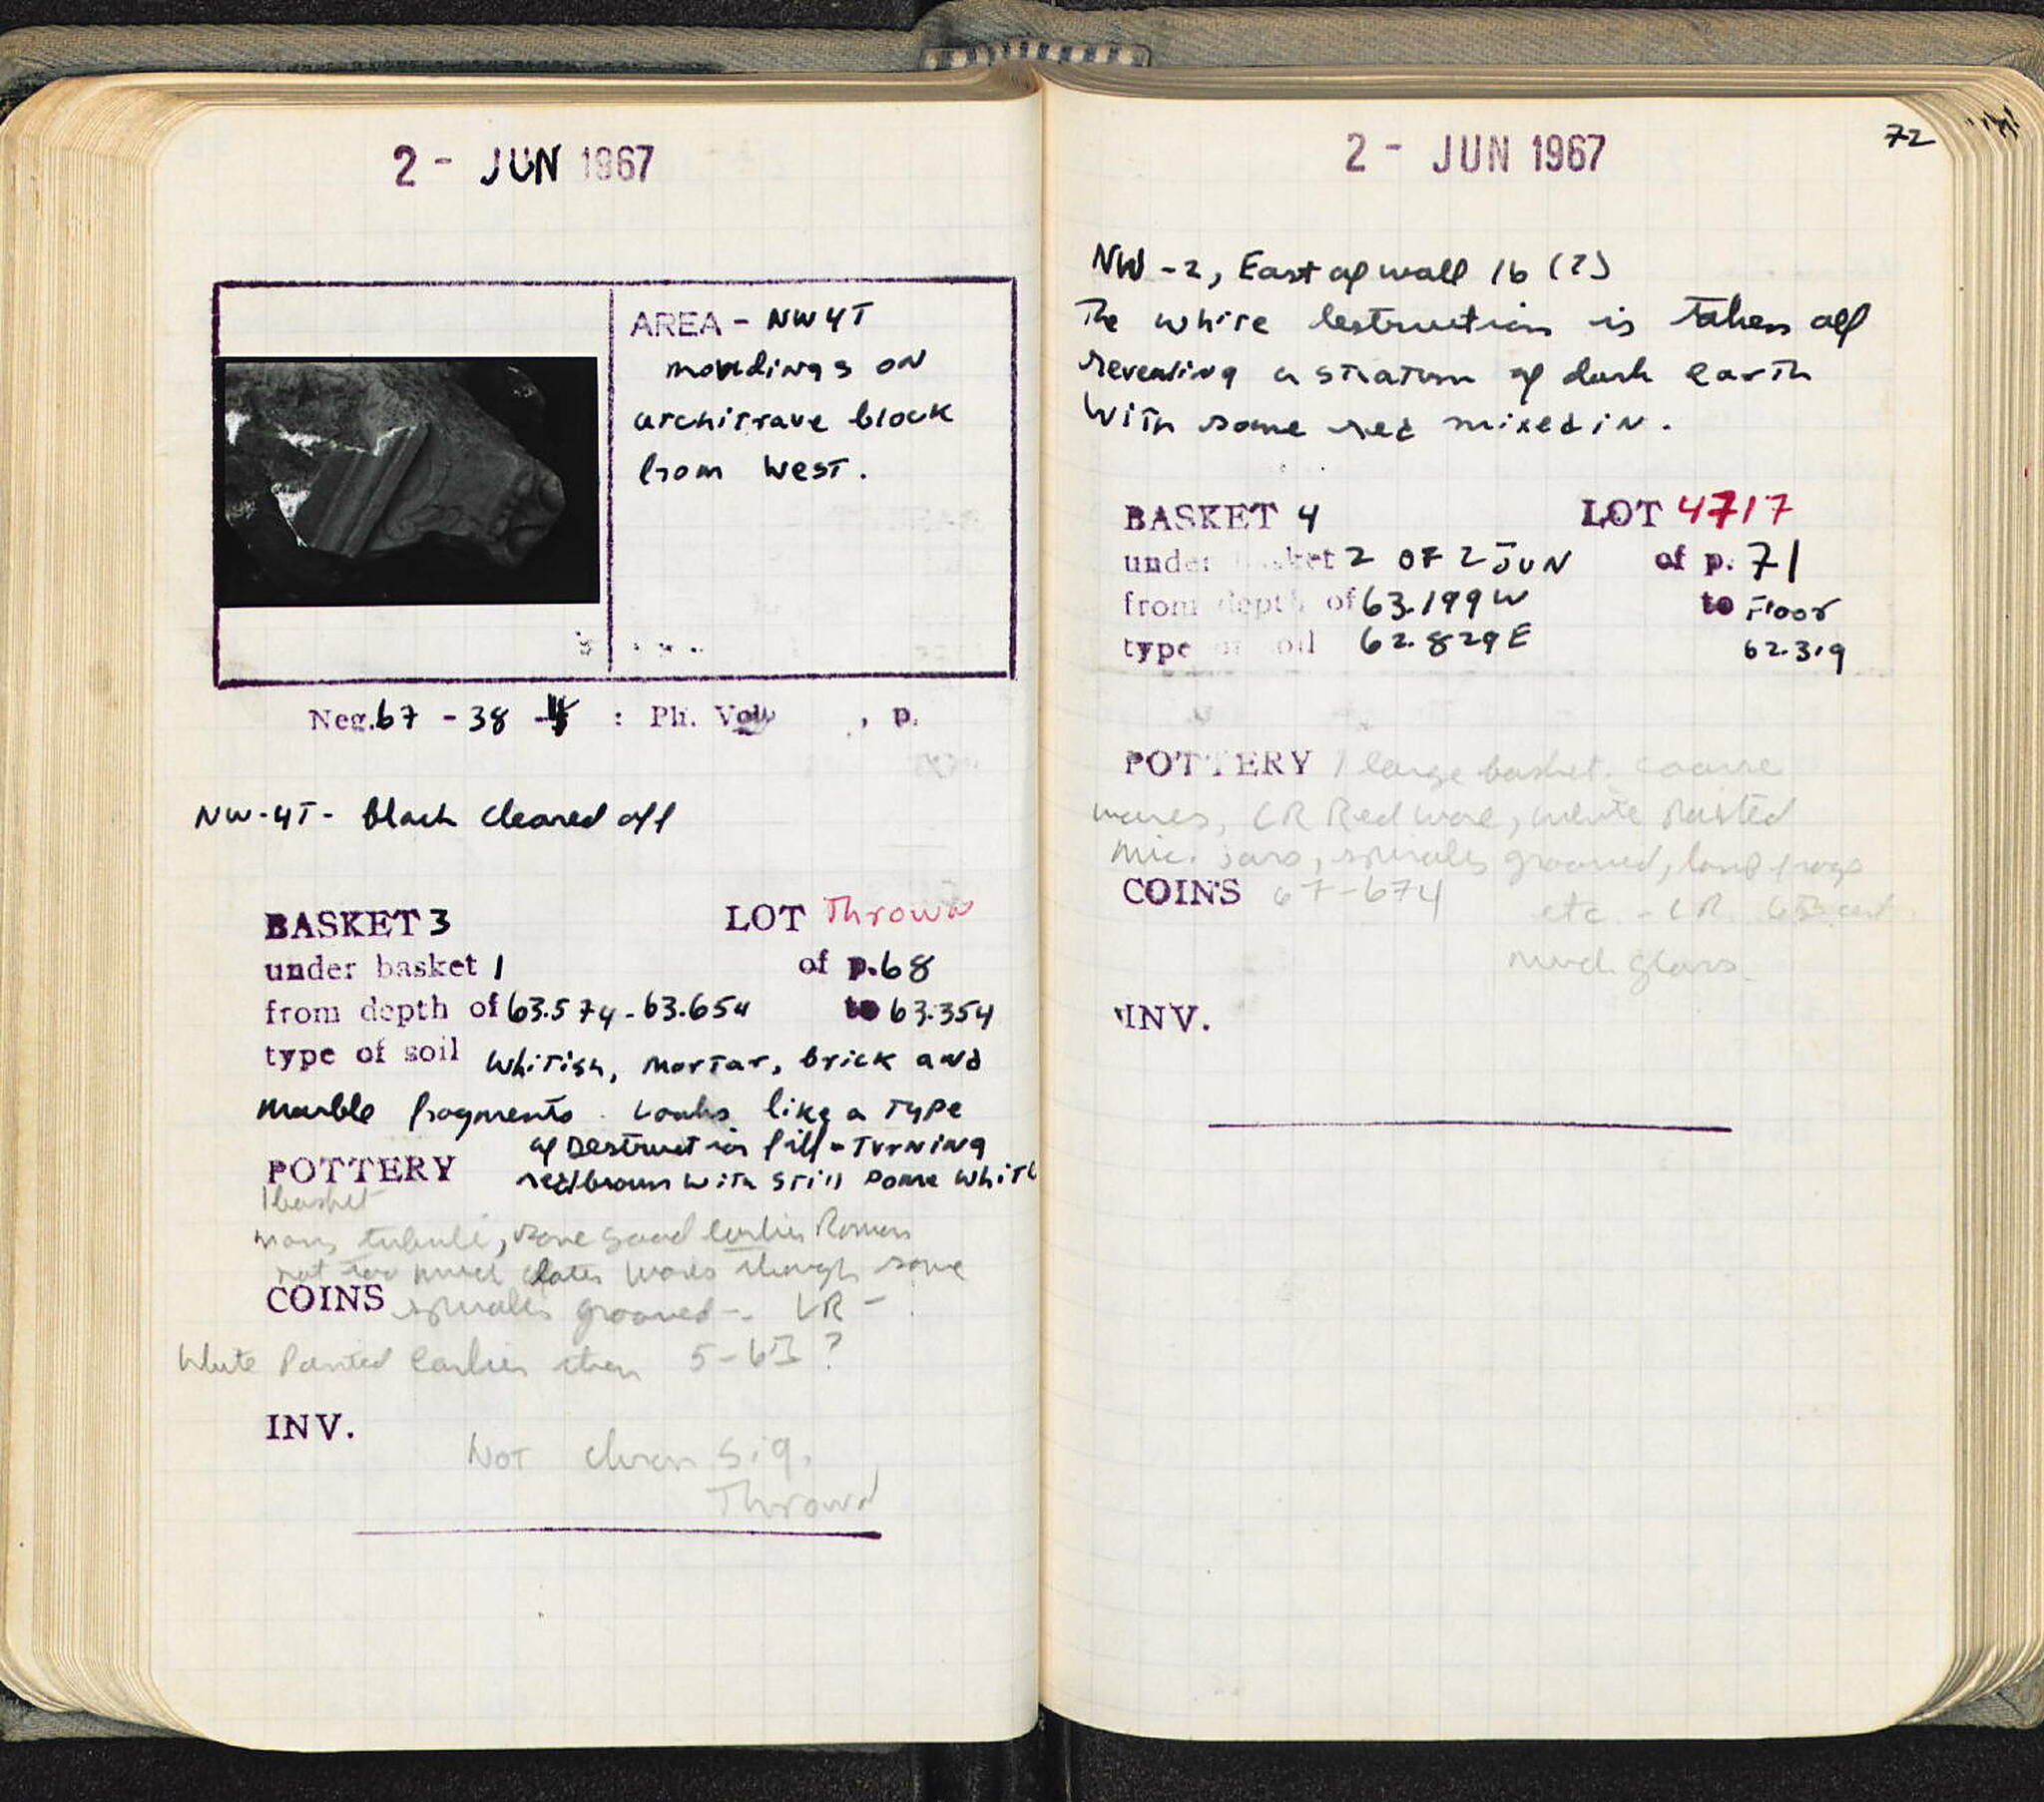 2 - JUN 1967
AREA - NW4T
mouldings on
architrave block
from West.
Neg. 67 - 38 : Ph. Vol , p.
NW-4T- black cleared off
BASKET 3 LOT Thrown
under basket 1 of p. 68
from depth of 63.574 - 63.654 to 63.354
type of soil Whitish, mortar, brick and
marble fragments. Looks like a type
of Destruction fill - Turning
red/brown with still some white
POTTERY
1 basket
many tubuli, some good earlier Roman
not too much later wares though some
COINS spirally grooved - LR -
White Painted earlier than 5-6 ?
INV.
Not chron sig.
Thrown
72
2 - JUN 1967
NW-2, East of wall 16 (?)
The white destruction is taken off
revealing a stratum of dark earth
with some red mixed in.
BASKET 4 LOT 4717
under basket 2 OF 2 JUN of p. 71
from depth of 63.199 W to Floor
type of soil 62.829 E 62.319
POTTERY 1 large basket. coarse
wares, LR Red ware, white Painted
mic. jars, spirally grooved, lamp frags
COINS 67-674 etc. - LR.
much glass.
INV.